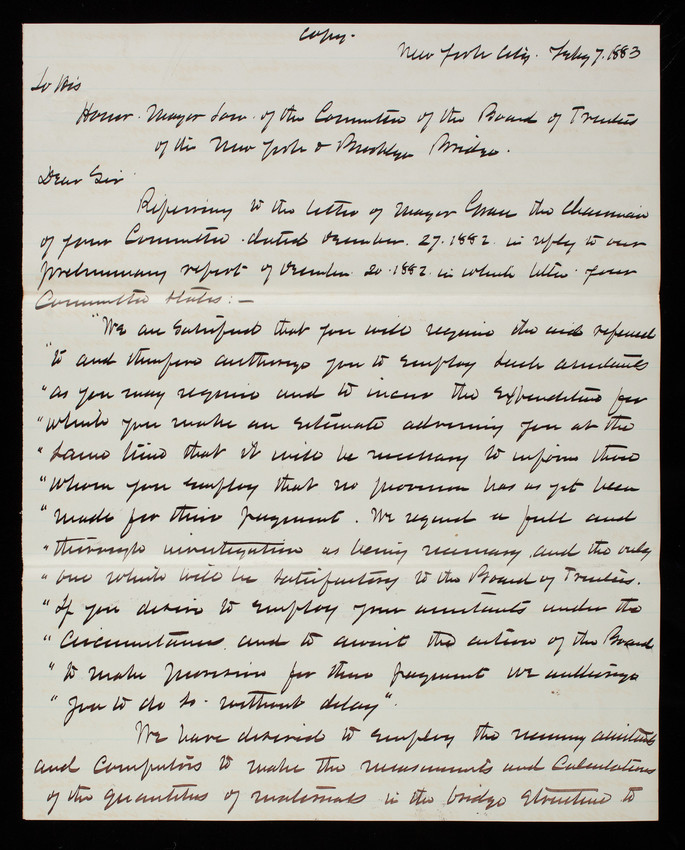 Copy.
New York City. Feby 7. 1883
To His
Honor. Mayor Low. of the Committee of the Board of Trustees
of the New York & Brooklyn Bridge.
Dear Sir
Referring to the letter of Mayor Grace the chairman
of your Committee dated December. 27. 1882. in reply to our
preliminary report of December 20. 1882. in which letter your
Committee states:—
"We are satisfied that you will require the aid referred
"to and therefore authorize you to employ such assistants
"as you may require and to incur the expenditure for
"which you make an estimate advising you at the
"same time that it will be necessary to inform those
"whom you employ that no provision has as yet been
"made for their payment. We regard a full and
"thorough investigation as being necessary and the only
"one which will be satisfactory to the Board of Trustees.
"If you desire to employ your assistants under the
"circumstances and to await the action of the Board
"to make provision for their payment we authorize
"you to do so without delay".
We have desired to employ the necessary assistants
and Computors to make the measurements and calculations
of the quantities of materials in the bridge structure to